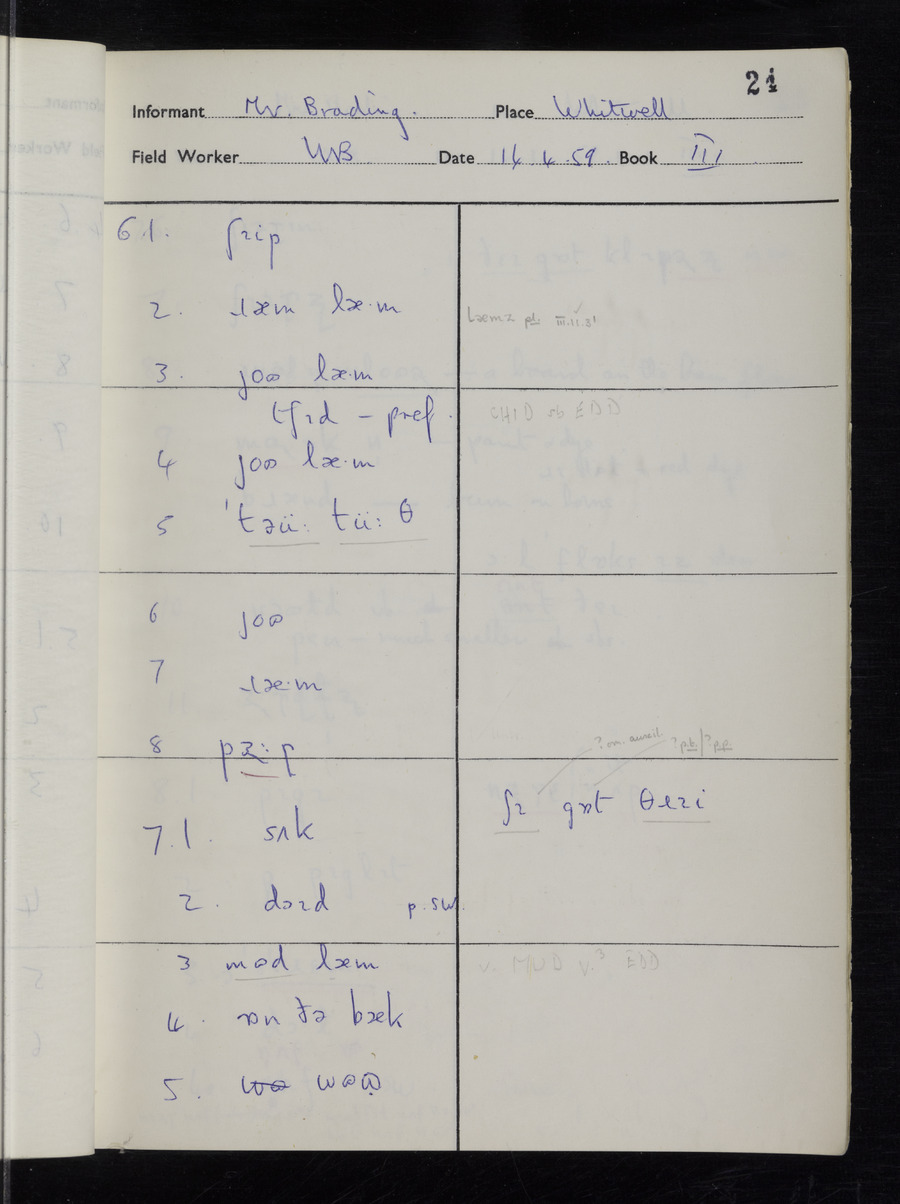 21
Informant Mr. Brading. Place Whitwell
Field Worker WB Date 14.4.59. Book III
6.1. ʃɹip
2. ɹæm læ·m
læmz pl. III.11.8¹
3. joə læ·m
tʃɪd – pref. CHID sb EDD
4 joə læ·m
5 ˈtəü: tü: θ
6 joə
7 ɹæ·m
8
? om. auxil ? p.t./? p.p.
gɒt θɛɪi
7.1. sʌk
2. p. SW.
3 mɒd læm v. MUD v.³ EDD
4. ɒn ðə bæk
5.